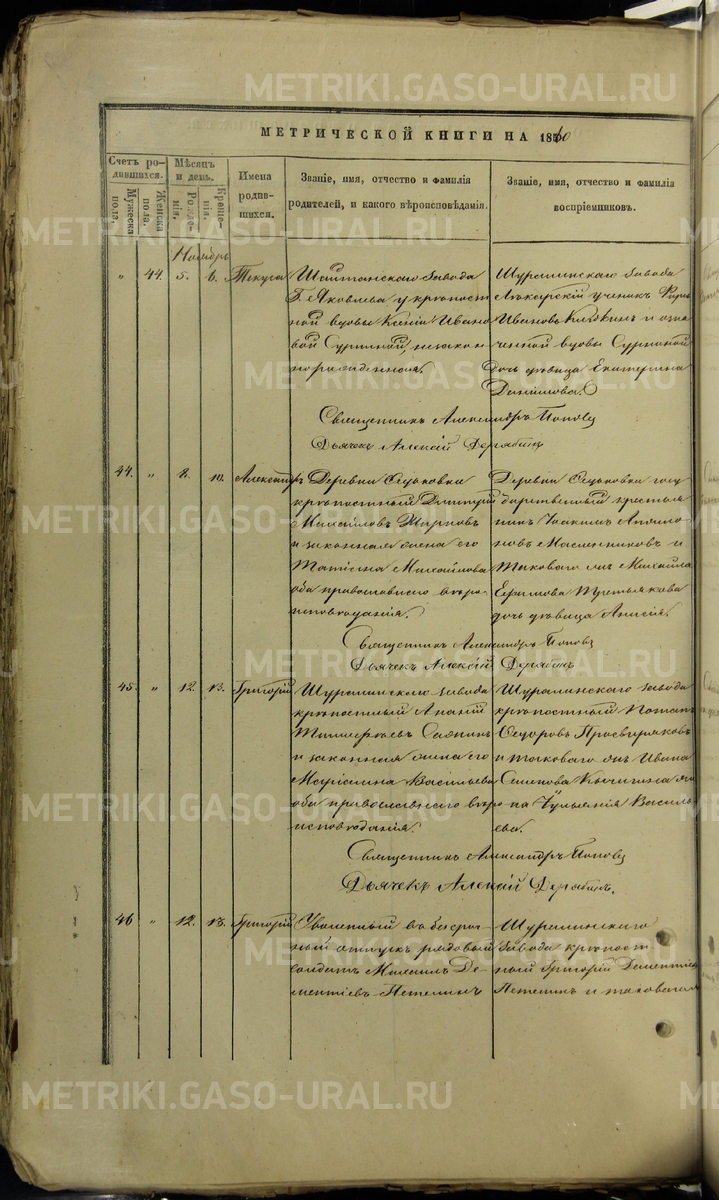 МЕТРИЧЕСКОЙ КНИГИ НА 1860
Счетъ родившихся.
Мужеска пола.
Женска пола.
Мѣсяцъ и день.
Рожденія.
Крещенія.
Имена родившихся.
Званіе, имя, отчество и фамилія родителей, и какого вѣроисповѣданія.
Званіе, имя, отчество и фамилія воспріемниковъ.
Ноябрь
" 44. 5. 6. Текуса
Шайтанскаго завода
Г. Яковлева у крѣпост
ной вдовы Ксеніи Ивано
вой незакон
норожденная.
Шуралинскаго завода
Лѣкарскій ученикъ
Ивановъ и озна
ченной вдовы
дочь дѣвица Екатерина
Данилова.
Священникъ Александръ Поповъ
Дьячекъ Алексій Дерябинъ
44. " 8. 10. Александръ
Деревни Осиновки
крѣпостный Димитрій
Михайловъ Жирновъ
и законная жена его
Татіана Михайлова
оба православнаго вѣро
исповѣданія.
Деревни Осиновки госу
дарственный крестья
нинъ Іоакимъ
новъ Масленниковъ и
таковаго же Михаила
Ефимова Третьякова
дочь дѣвица Анисія.
Священникъ Александръ Поповъ
Дьячекъ Алексій Дерябинъ
45. " 12. 13. Григорій
Шуралинскаго завода
крѣпостный Ананій
Тимофеевъ
и законная жена его
Маріамна Васильева
оба православнаго вѣро
исповѣданія.
Шуралинскаго завода
крѣпостный Потапъ
Ѳедоровъ Просвиряковъ
и таковаго же Ивана
Семенова Кычигина же
на Іуліанія Василь
ева.
Священникъ Александръ Поповъ
Дьячекъ Алексій Дерябинъ.
46 " 12. 13. Григорій
Уволенный въ безсроч
ный отпускъ рядовый
солдатъ Михаилъ Де
ментіевъ Петелинъ
Шуралинскаго
завода крѣпост
ный Григорій Дементіе
Петелинъ и таковаго
METRIKI.GASO-URAL.RU